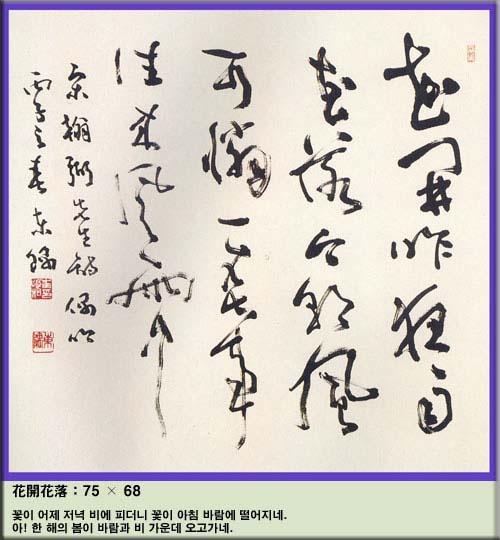 花開昨夜雨
花落今朝風
可憐一春事
往來風雨中
宋翰弼先生詩 偶吟
丙子之春 東
花開花落 : 75 × 68
꽃이 어제 저녁 비에 피더니 꽃이 아침 바람에 떨어지네.
아! 한 해의 봄이 바람과 비 가운데 오고가네.